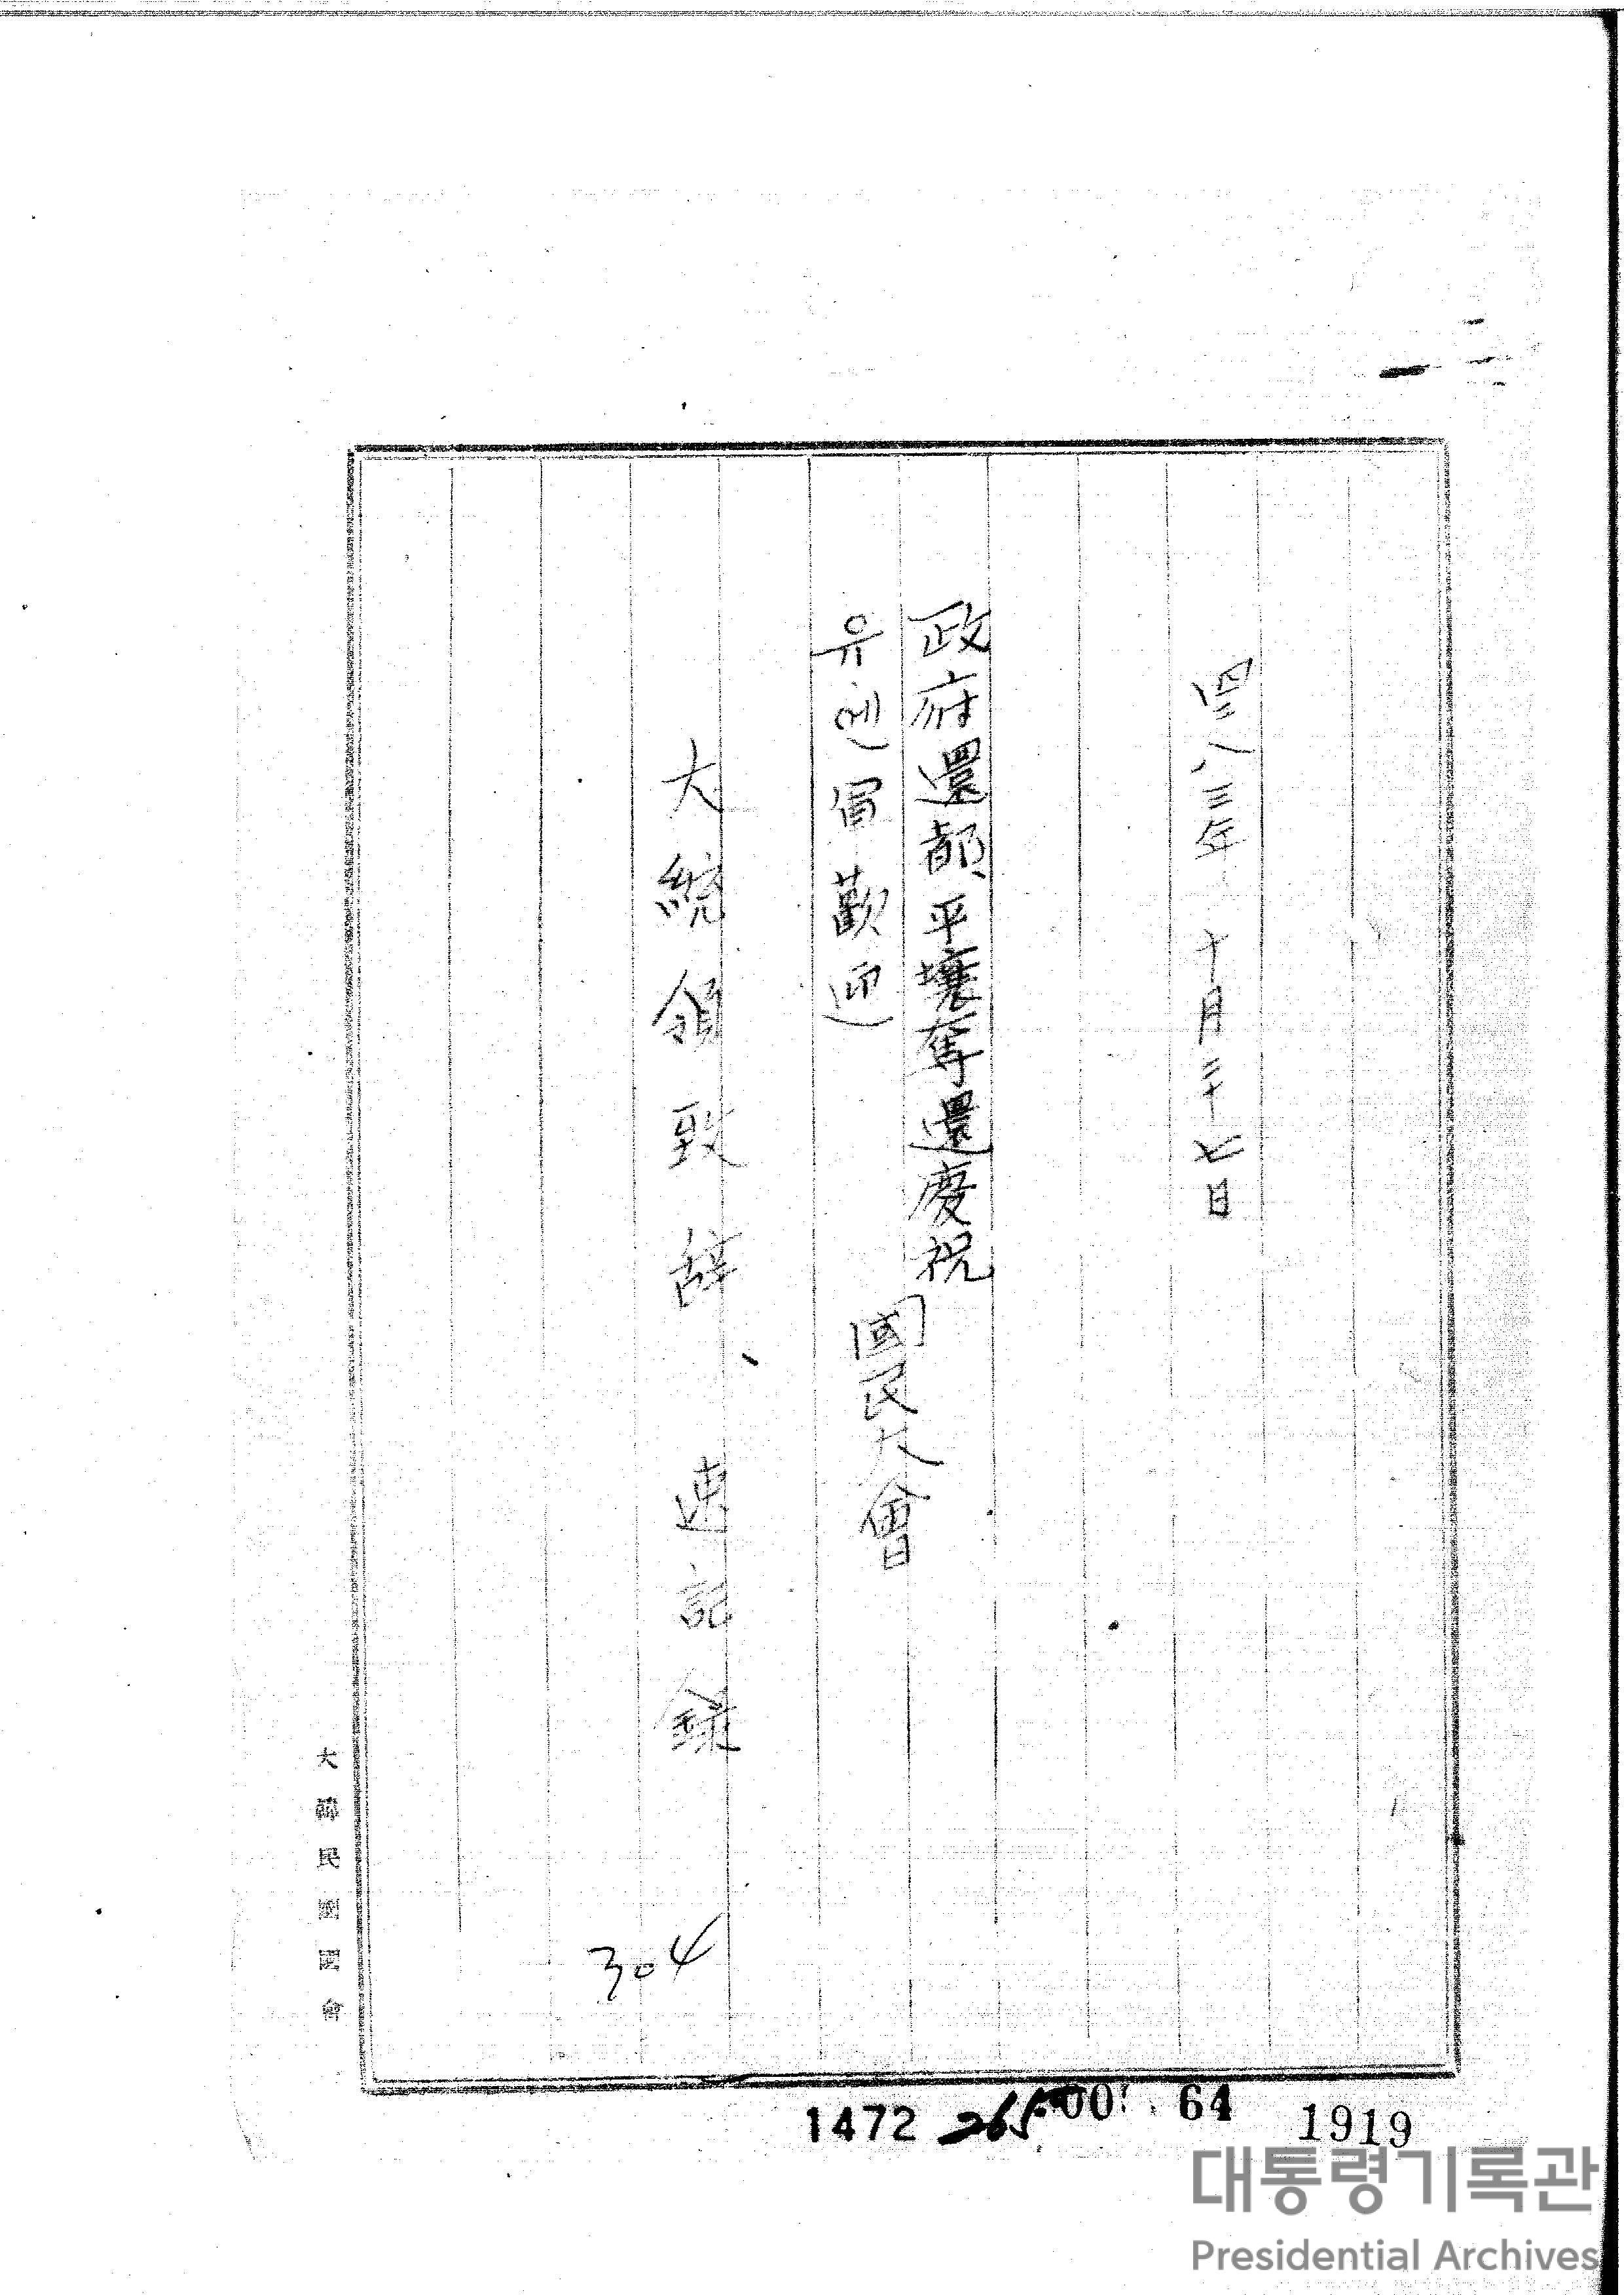 四二八三年 十月二十七日
政府還都、平壤奪還慶祝
유엔(軍歡迎)
國民大會
大統領致辞 速記録
大韓民國國會
304
1472
64
1919
대통령기록관
Presidential Archives